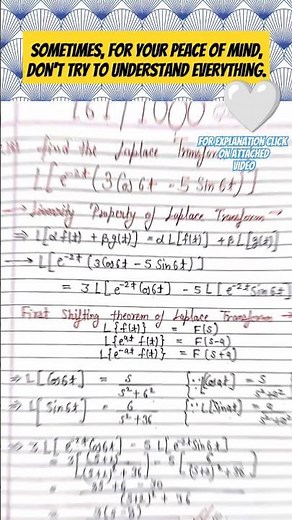 SOMETIMES, FOR YOUR PEACE OF MIND,
DON'T TRY TO UNDERSTAND EVERYTHING.
161/1000
FOR EXPLANATION CLICK
ON ATTACHED
VIDEO
find the Laplace Transform
L[e^-2t (3Cos6t - 5Sin6t)]
→ Linearity Property of Laplace Transform →
⇒ L[αf(t) + βg(t)] = αL[f(t)] + βL[g(t)]
→ L[e^-2t (3Cos6t - 5Sin6t)]
= 3L[e^-2t Cos6t] - 5L[e^-2t Sin6t]
First Shifting theorem of Laplace Transform →
L{f(t)} = F(s)
L{e^at f(t)} = F(s-a)
L{e^-at f(t)} = F(s+a)
⇒ L[Cos6t] = s/(s²+6²) {∵L[Cosat] = s/(s²+a²)
⇒ L[Sin6t] = 6/(s²+36) {∵L[Sinat] = a/(s²+a²)
⇒ 3L[e^-2t Cos6t] - 5L[e^-2t Sin6t]
= 3[(s+2)/((s+2)²+36)] - 5[6/((s+2)²+36)]
= (3s+6-30)/((s+2)²+36)